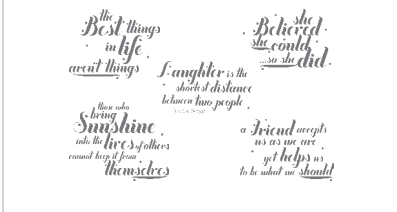 the
Best things
in life
aren't things
she
Believed
she could
...so she did
Laughter is the
shortest distance
between two people
those who
bring
Sunshine
into the lives of others
cannot keep it from
themselves
a Friend accepts
us as we are
yet helps us
to be what we should